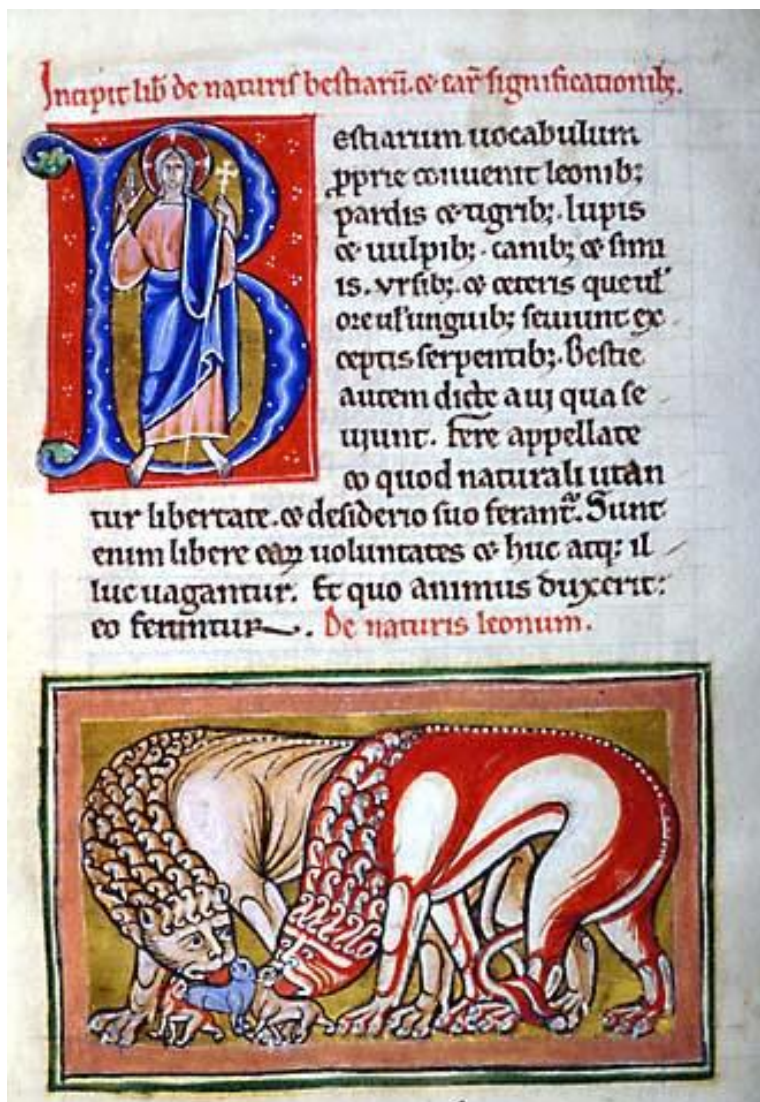 Incipit lib̄ de naturis bestiarū. & eaꝝ significationib;.
Bestiarum uocabulum
ꝓprie conuenit leonib;
pardis & tigrib;. lupis
& uulpib;. canib; & simi
is. vrsib;. & ceteris que uł
ore uł unguib; seuiunt ex
ceptis serpentib;. Bestie
autem dicte a ui qua se
uiunt. Fere appellate
eo quod naturali utan
tur libertate. & desiderio suo ferant᷑. Sunt
enim libere eaꝝ uoluntates & huc atq; il
luc uagantur. Et quo animus duxerit:
eo feruntur. De naturis leonum.